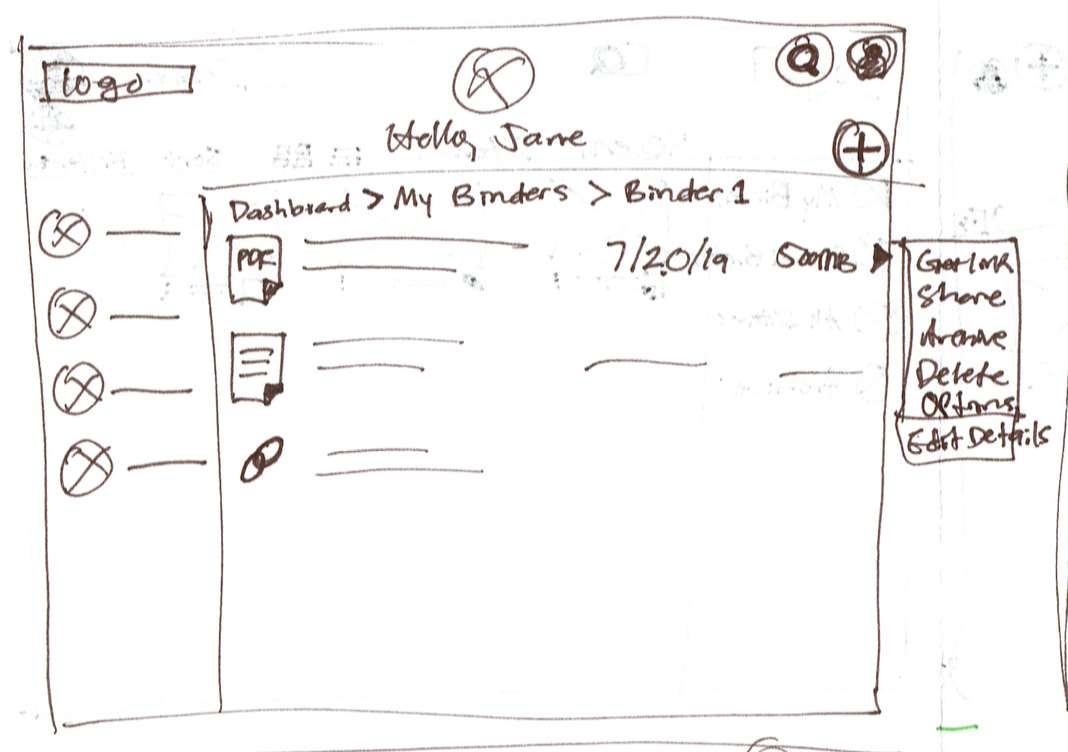 logo
Hello, Jane
Dashboard > My Binders > Binder 1
PDF
7/20/19 500MB
Get link
Share
Archive
Delete
Options
Edit Details